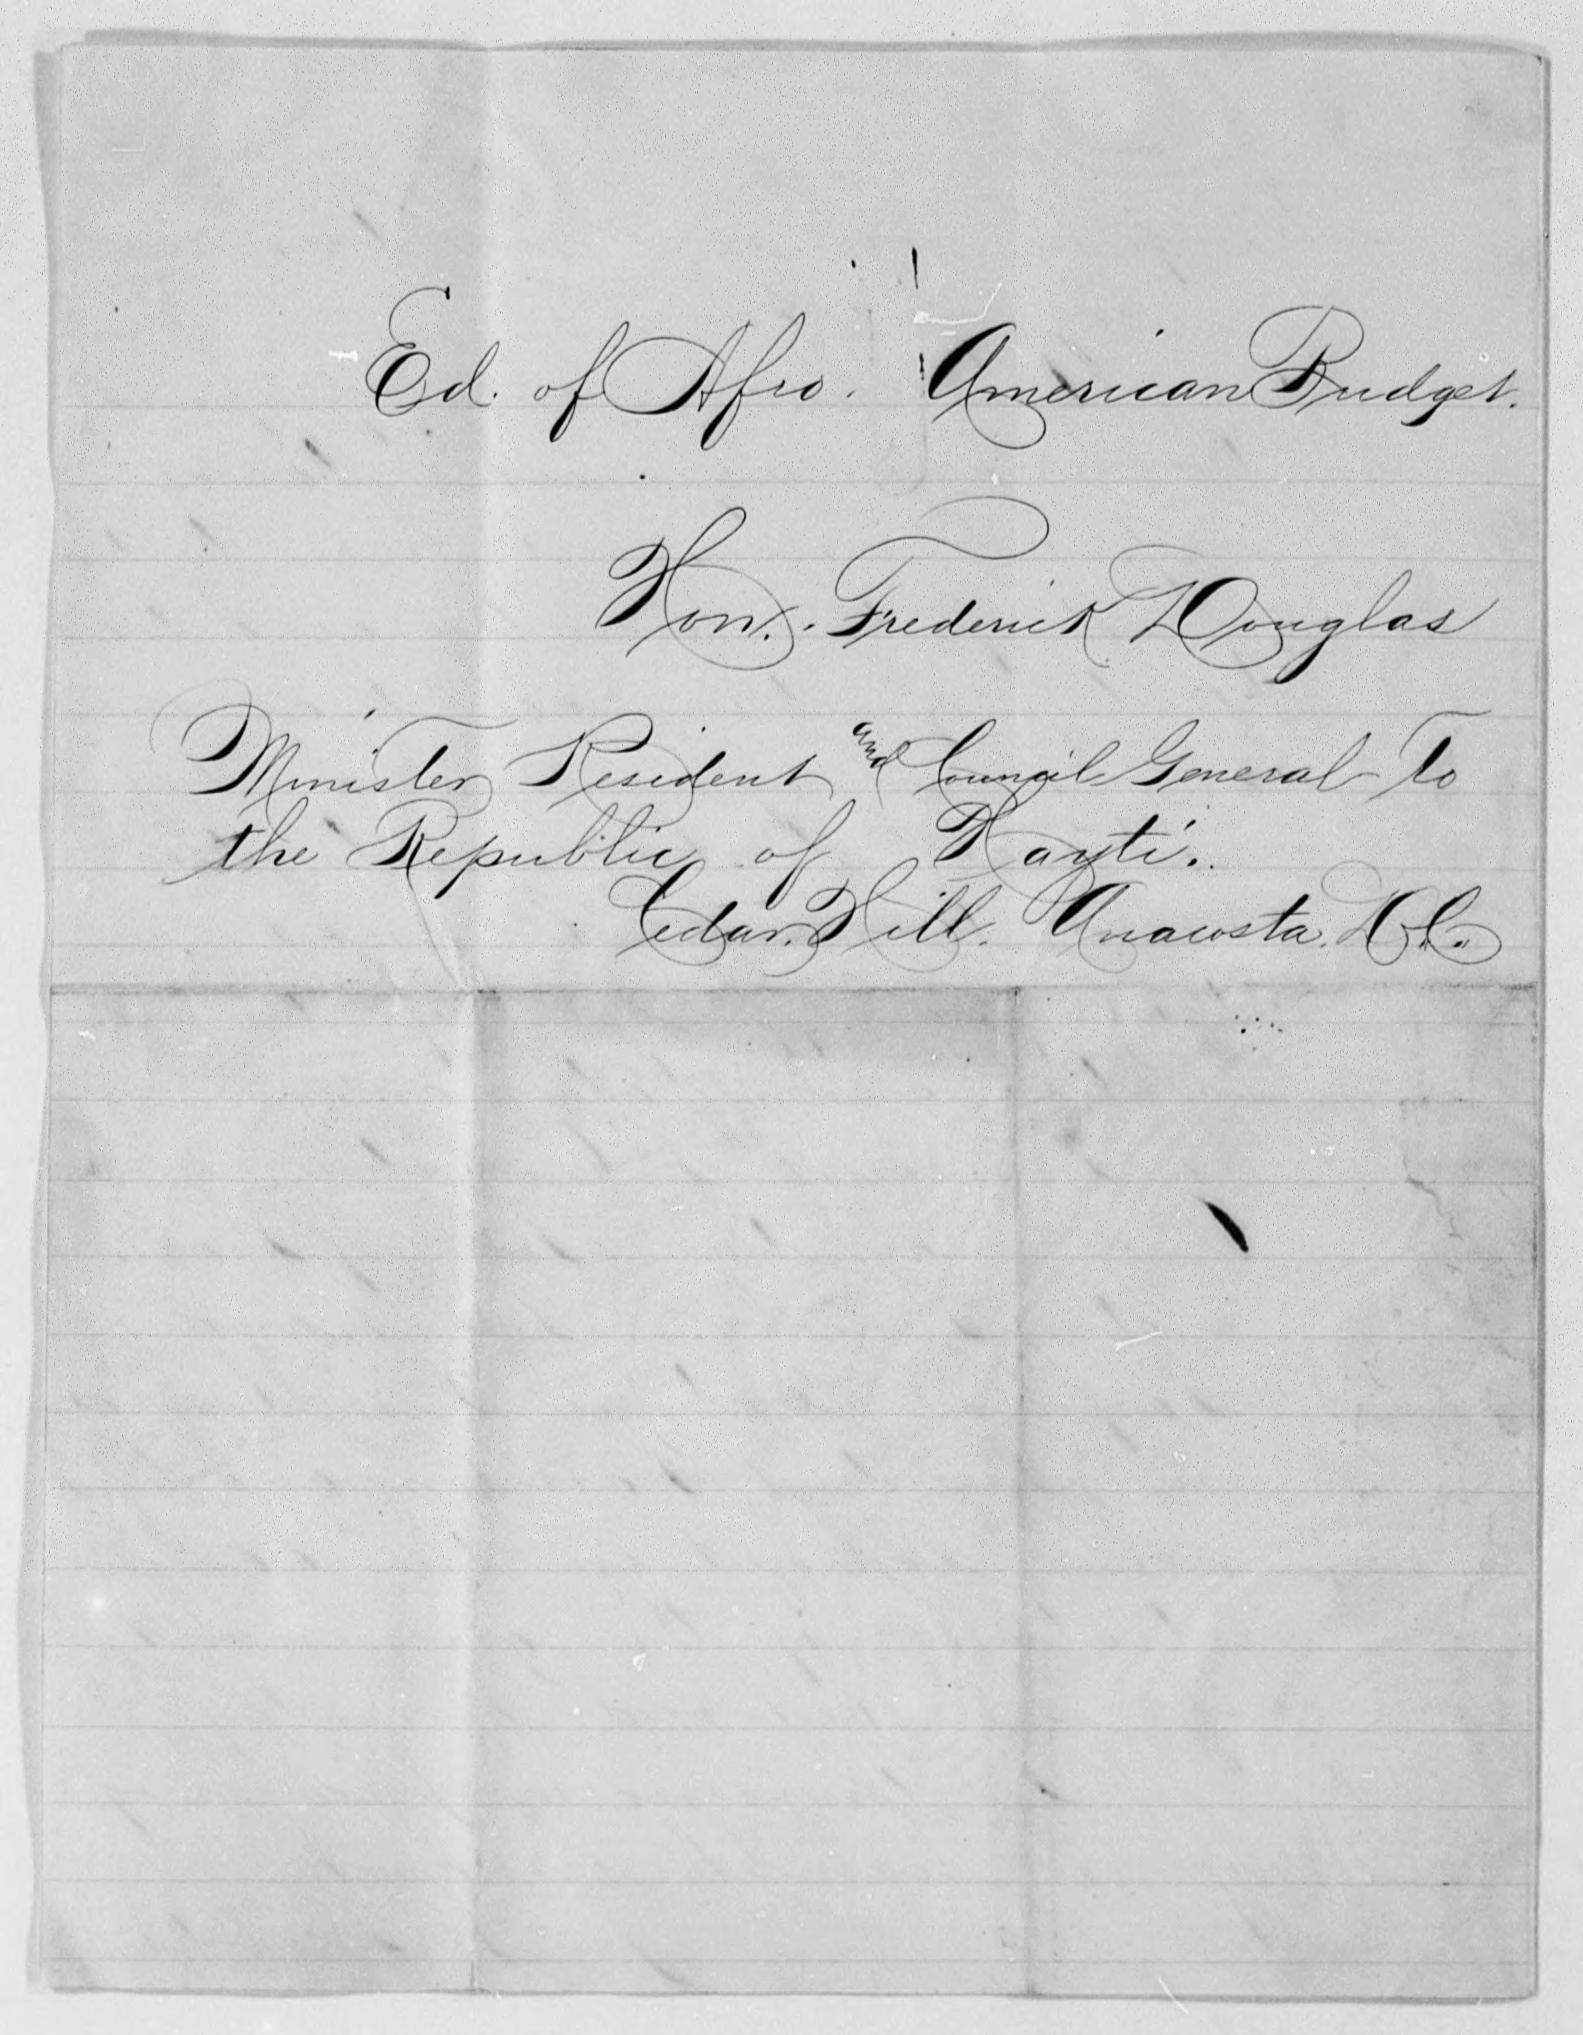 Ed. of Afro. American Budget.
Hon. Frederick Douglas
Minister Resident and Council General To
the Republic of Hayti.
Cedar. Hill. Anacosta. D.C.